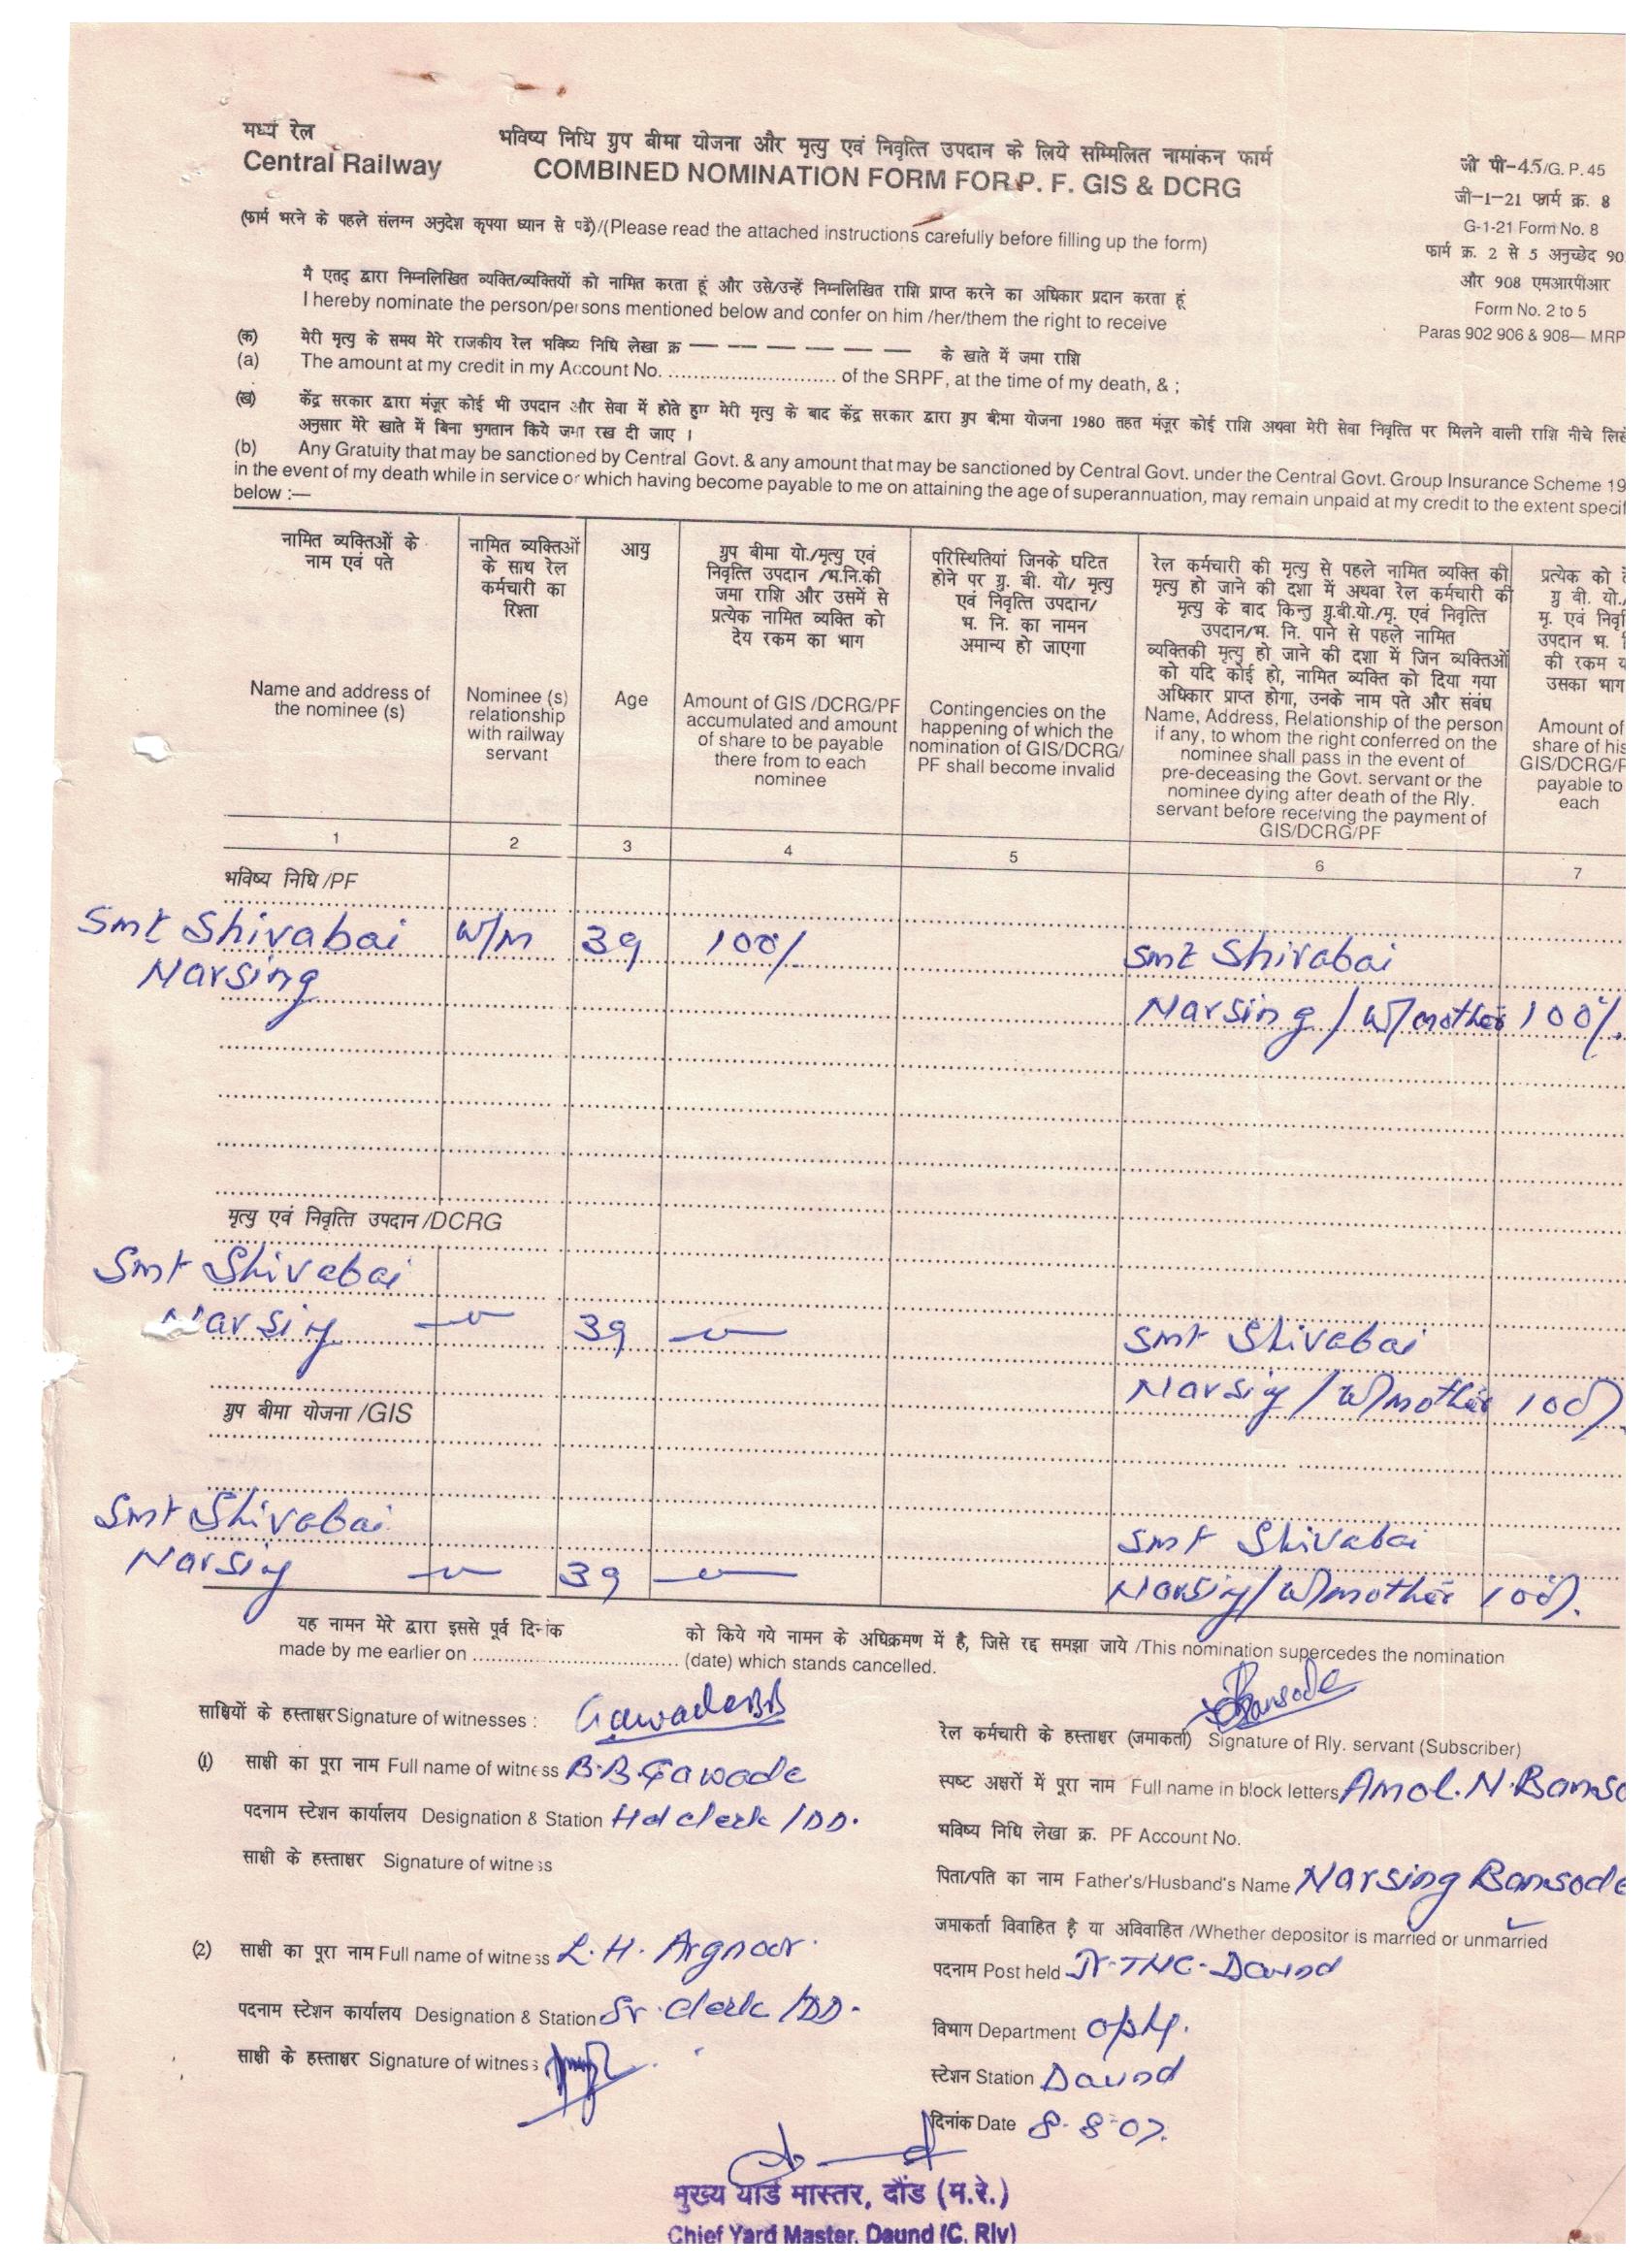 मध्य रेल
Central Railway
भविष्य निधि ग्रुप बीमा योजना और मृत्यु एवं निवृत्ति उपदान के लिये सम्मिलित नामांकन फार्म
COMBINED NOMINATION FORM FOR P. F. GIS & DCRG
जी पी-45/G. P. 45
जी-1-21 फार्म क्र. 8
G-1-21 Form No. 8
फार्म क्र. 2 से 5 अनुच्छेद 90
और 908 एमआरपीआर
Form No. 2 to 5
Paras 902 906 & 908— MRP
(फार्म भरने के पहले संलग्न अनुदेश कृपया ध्यान से पढें)/(Please read the attached instructions carefully before filling up the form)
मै एतद् द्वारा निम्नलिखित व्यक्ति/व्यक्तियों को नामित करता हूं और उसे/उन्हें निम्नलिखित राशि प्राप्त करने का अधिकार प्रदान करता हूं
I hereby nominate the person/persons mentioned below and confer on him /her/them the right to receive
(क) मेरी मृत्यु के समय मेरे राजकीय रेल भविष्य निधि लेखा क्र — — — — — — के खाते में जमा राशि
(a) The amount at my credit in my Account No. ............................ of the SRPF, at the time of my death, & ;
(ख) केंद्र सरकार द्वारा मंजूर कोई भी उपदान और सेवा में होते हुए मेरी मृत्यु के बाद केंद्र सरकार द्वारा ग्रुप बीमा योजना 1980 तहत मंजूर कोई राशि अथवा मेरी सेवा निवृत्ति पर मिलने वाली राशि नीचे लिखे
अनुसार मेरे खाते में बिना भुगतान किये जमा रख दी जाए ।
(b) Any Gratuity that may be sanctioned by Central Govt. & any amount that may be sanctioned by Central Govt. under the Central Govt. Group Insurance Scheme 19
in the event of my death while in service or which having become payable to me on attaining the age of superannuation, may remain unpaid at my credit to the extent specif
below :—
नामित व्यक्तिओं के
नाम एवं पते
Name and address of
the nominee (s)
नामित व्यक्तिओं
के साथ रेल
कर्मचारी का
रिश्ता
Nominee (s)
relationship
with railway
servant
आयु
Age
ग्रुप बीमा यो./मृत्यु एवं
निवृत्ति उपदान /भ.नि.की
जमा राशि और उसमें से
प्रत्येक नामित व्यक्ति को
देय रकम का भाग
Amount of GIS /DCRG/PF
accumulated and amount
of share to be payable
there from to each
nominee
परिस्थितियां जिनके घटित
होने पर ग्रु. बी. यो/ मृत्यु
एवं निवृत्ति उपदान/
भ. नि. का नामन
अमान्य हो जाएगा
Contingencies on the
happening of which the
nomination of GIS/DCRG/
PF shall become invalid
रेल कर्मचारी की मृत्यु से पहले नामित व्यक्ति की
मृत्यु हो जाने की दशा में अथवा रेल कर्मचारी की
मृत्यु के बाद किन्तु ग्रु.बी.यो./मृ. एवं निवृत्ति
उपदान/भ. नि. पाने से पहले नामित
व्यक्तिकी मृत्यु हो जाने की दशा में जिन व्यक्तिओं
को यदि कोई हो, नामित व्यक्ति को दिया गया
अधिकार प्राप्त होगा, उनके नाम पते और संबंध
Name, Address, Relationship of the person
if any, to whom the right conferred on the
nominee shall pass in the event of
pre-deceasing the Govt. servant or the
nominee dying after death of the Rly.
servant before receiving the payment of
GIS/DCRG/PF
प्रत्येक को दे
ग्रु बी. यो./
मृ. एवं निवृ
उपदान भ.
की रकम य
उसका भाग
Amount of
share of his
GIS/DCRG/P
payable to
each
1 2 3 4 5 6 7
भविष्य निधि /PF
Smt Shivabai W/M 39 100% Smt Shivabai
Narsing Narsing / W/mother 100%
मृत्यु एवं निवृत्ति उपदान /DCRG
Smt Shivabai
Narsing —"— 39 —"— Smt Shivabai
Narsing / W/mother 100%
ग्रुप बीमा योजना /GIS
Smt Shivabai Smt Shivabai
Narsing —"— 39 —"— Narsing / W/mother 100%.
यह नामन मेरे द्वारा इससे पूर्व दिनांक को किये गये नामन के अधिक्रमण में है, जिसे रद्द समझा जाये /This nomination supercedes the nomination
made by me earlier on .................................... (date) which stands cancelled.
साक्षियों के हस्ताक्षर Signature of witnesses : GawadeBB
Bansode
रेल कर्मचारी के हस्ताक्षर (जमाकर्ता) Signature of Rly. servant (Subscriber)
(1) साक्षी का पूरा नाम Full name of witness B.B.Gawade
स्पष्ट अक्षरों में पूरा नाम Full name in block letters Amol. N. Banso
पदनाम स्टेशन कार्यालय Designation & Station Hd clerk /DD.
भविष्य निधि लेखा क्र. PF Account No.
साक्षी के हस्ताक्षर Signature of witness
पिता/पति का नाम Father's/Husband's Name Narsing Bansode
जमाकर्ता विवाहित है या अविवाहित /Whether depositor is married or unmarried
(2) साक्षी का पूरा नाम Full name of witness L. H.
पदनाम Post held Jr-TNC-Daund
पदनाम स्टेशन कार्यालय Designation & Station Sr. Clerk /DD.
विभाग Department Optg.
साक्षी के हस्ताक्षर Signature of witness
स्टेशन Station Daund
दिनांक Date 8-8-07.
मुख्य यार्ड मास्तर, दौंड (म.रे.)
Chief Yard Master, Daund (C. Rly)